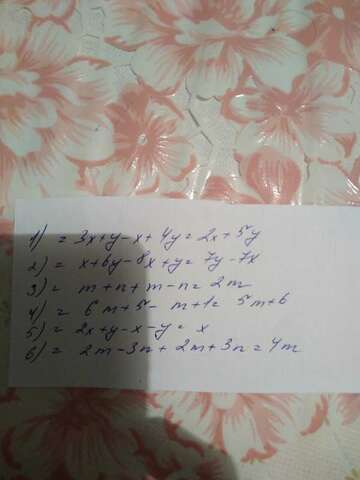 1) = 3x+y-x+4y= 2x+5y
2) = x+6y-8x+y= 7y-7x
3) = m+n+m-n= 2m
4) = 6m+5-m+1= 5m+6
5) = 2x+y-x-y= x
6) = 2m-3n+2m+3n=4m